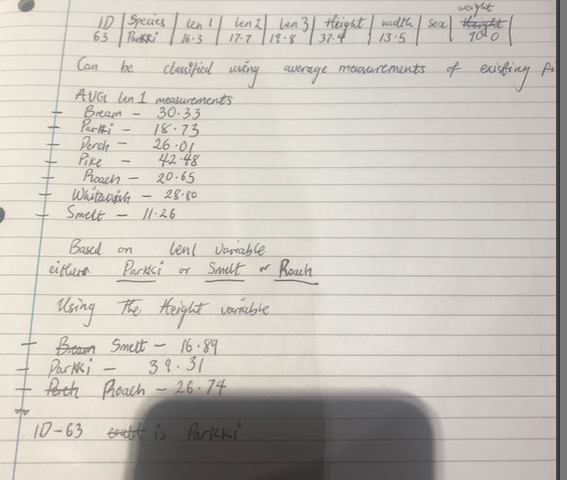 ID | Species | Len 1 | Len 2 | Len 3 | Height | width | sex | weight
63 | Parkki | 16.3 | 17.7 | 19.8 | 37.4 | 13.5 | | 70.0
Can be classified using average measurements of existing fi
AVG Len 1 measurements
- Bream - 30.33
- Parkki - 18.73
- Perch - 26.01
- Pike - 42.48
- Roach - 20.65
- Whitewish - 28.80
- Smelt - 11.26
Based on len1 variable
either Parkki or Smelt or Roach
Using The Height variable
- Bream Smelt - 16.89
- Parkki - 39.31
- Perch Roach - 26.74
ID-63 could is Parkki